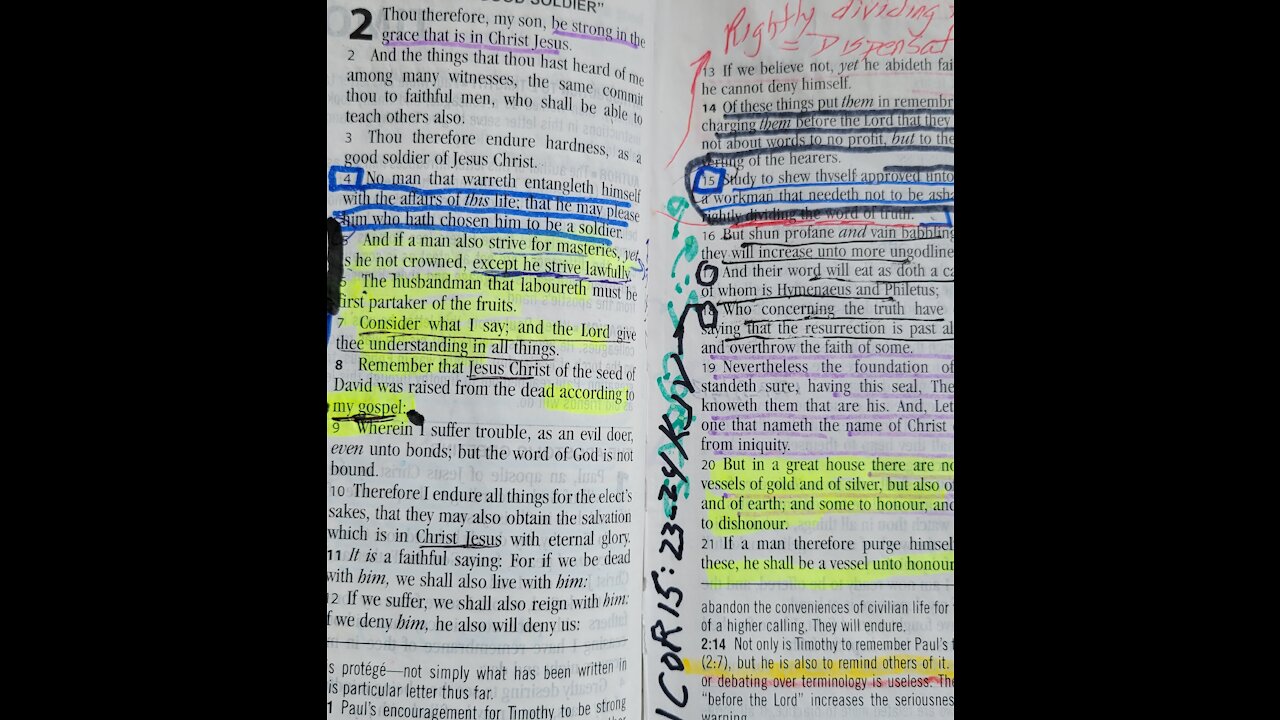 SOLDIER"
2 Thou therefore, my son, be strong in the
grace that is in Christ Jesus.
2 And the things that thou hast heard of me
among many witnesses, the same commit
thou to faithful men, who shall be able to
teach others also.
3 Thou therefore endure hardness, as a
good soldier of Jesus Christ.
4 No man that warreth entangleth himself
with the affairs of this life; that he may please
him who hath chosen him to be a soldier.
And if a man also strive for masteries, yet
is he not crowned, except he strive lawfully.
The husbandman that laboureth must be
first partaker of the fruits.
7 Consider what I say; and the Lord give
thee understanding in all things.
8 Remember that Jesus Christ of the seed of
David was raised from the dead according to
my gospel:
9 Wherein I suffer trouble, as an evil doer,
even unto bonds; but the word of God is not
bound.
10 Therefore I endure all things for the elect's
sakes, that they may also obtain the salvation
which is in Christ Jesus with eternal glory.
11 It is a faithful saying: For if we be dead
with him, we shall also live with him:
12 If we suffer, we shall also reign with him:
if we deny him, he also will deny us:
s protégé—not simply what has been written in
is particular letter thus far.
1 Paul's encouragement for Timothy to be strong
1 COR 15:23-24
Rightly dividing
= Dispensat
13 If we believe not, yet he abideth fai
he cannot deny himself.
14 Of these things put them in remembr
charging them before the Lord that they
not about words to no profit, but to the
of the hearers.
15 Study to shew thyself approved unto
a workman that needeth not to be asha
rightly dividing the word of truth.
16 But shun profane and vain babbling
they will increase unto more ungodline
And their word will eat as doth a ca
of whom is Hymenaeus and Philetus;
Who concerning the truth have
saying that the resurrection is past al
and overthrow the faith of some.
19 Nevertheless the foundation of
standeth sure, having this seal, The
knoweth them that are his. And, Let
one that nameth the name of Christ
from iniquity.
20 But in a great house there are no
vessels of gold and of silver, but also o
and of earth; and some to honour, and
to dishonour.
21 If a man therefore purge himsel
these, he shall be a vessel unto honour
abandon the conveniences of civilian life for
of a higher calling. They will endure.
2:14 Not only is Timothy to remember Paul's
(2:7), but he is also to remind others of it.
or debating over terminology is useless. The
"before the Lord" increases the seriousnes
warning.